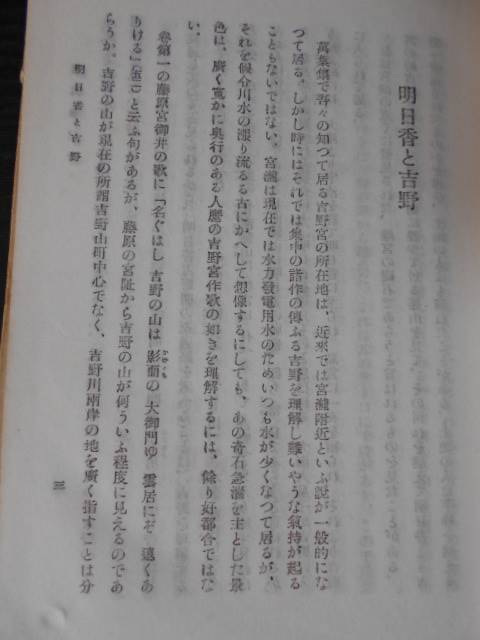 明日香と吉野
萬葉集で吾々の知つて居る吉野宮の所在地は、近來では宮瀧附近といふ說が一般的にな
つて居る。しかし時にはそれでは集中の諸作の傳ふる吉野を理解し難いやうな氣持が起る
こともないではない。宮瀧は現在では水力發電用水のためいつも水が少くなつて居るが、
それを假令川水の漲り流るる古にかへして想像するにしても、あの奇石急湍を主とした景
色は、廣く寛かに奧行のある人麿の吉野宮作歌の如きを理解するには、餘り好都合ではな
い。
卷第一の藤原宮御井の歌に「名ぐはし 吉野の山は 影面の 大御門ゆ 雲居にぞ 遠くあ
りける」(五二)と云ふ句があるが、藤原の宮趾から吉野の山が何ういふ程度に見えるのであ
らうか。吉野の山が現在の所謂吉野山町中心でなく、吉野川兩岸の地を廣く指すことは分
明日香と吉野
三